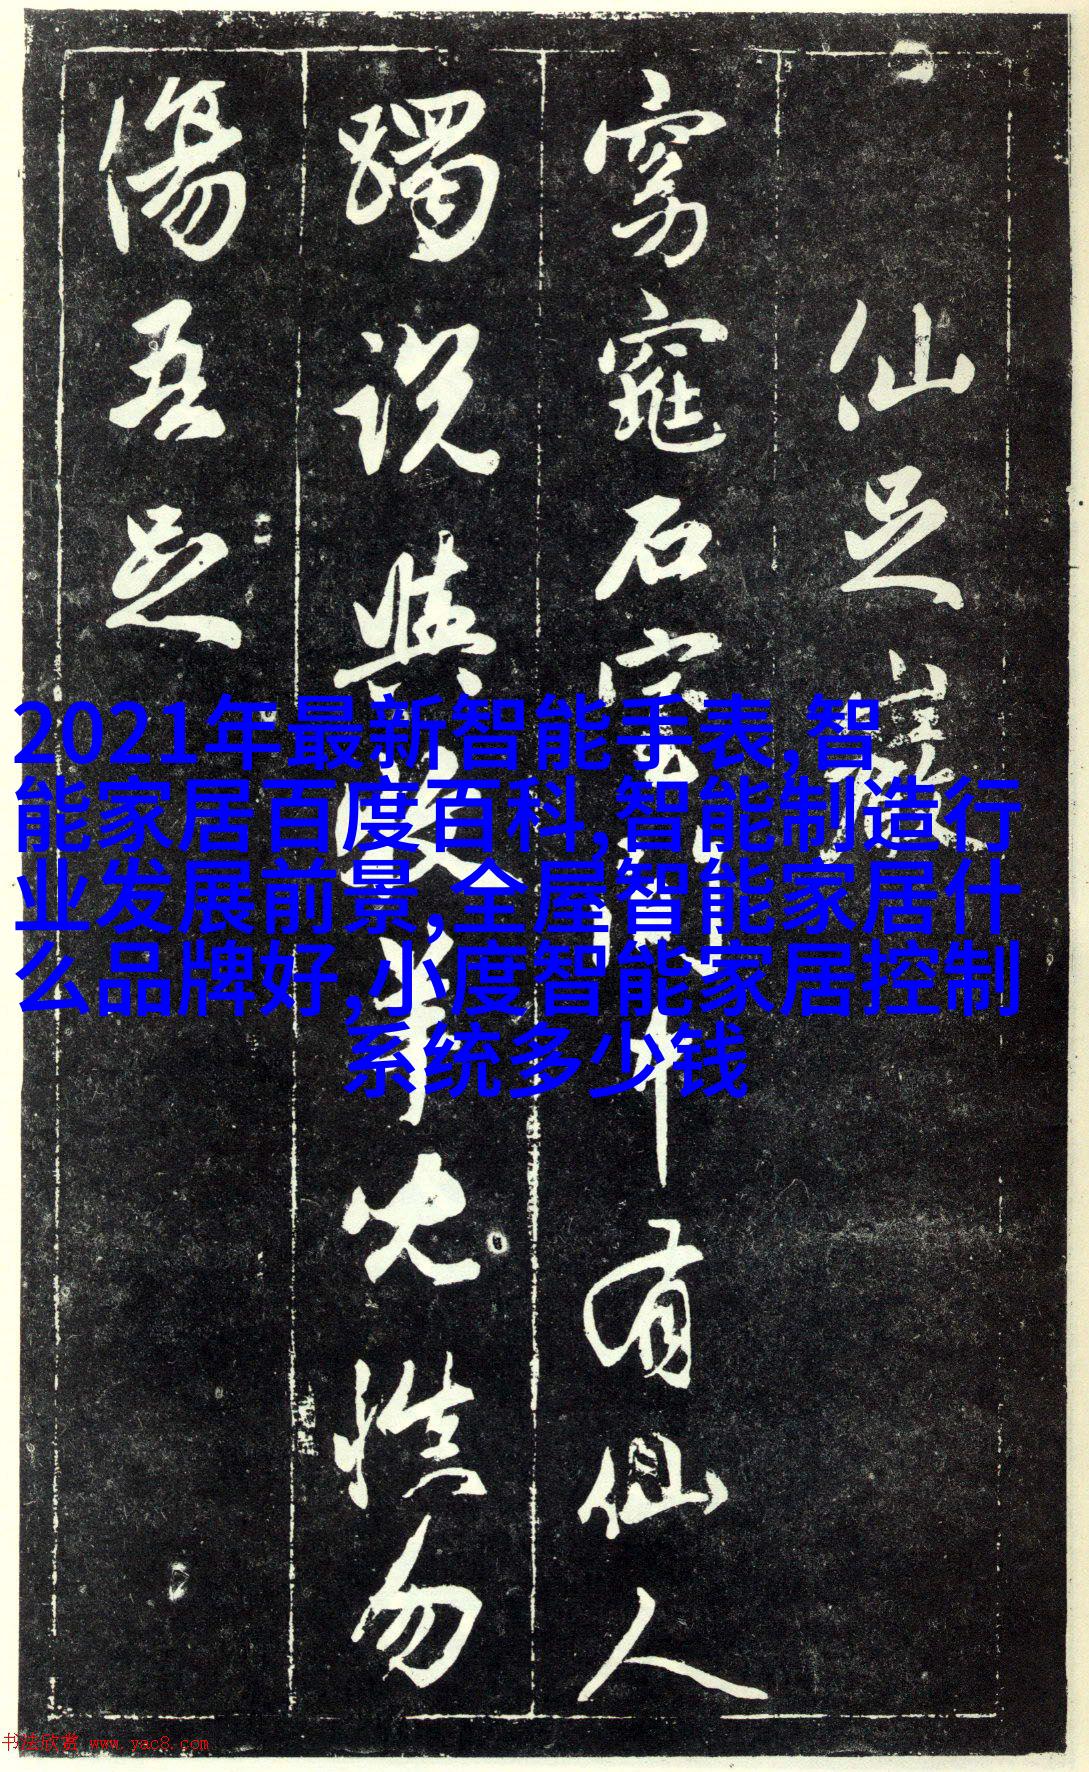 仙足
窈窕石室有仙人
躅説與牧羊兒慎勿
傷吾足
2021年最新智能手表,智
能家居百度百科,智能制造行
业发展前景,全屋智能家居什
么品牌好,小度智能家居控制
系统多少钱
书法欣赏 www.yac8.com